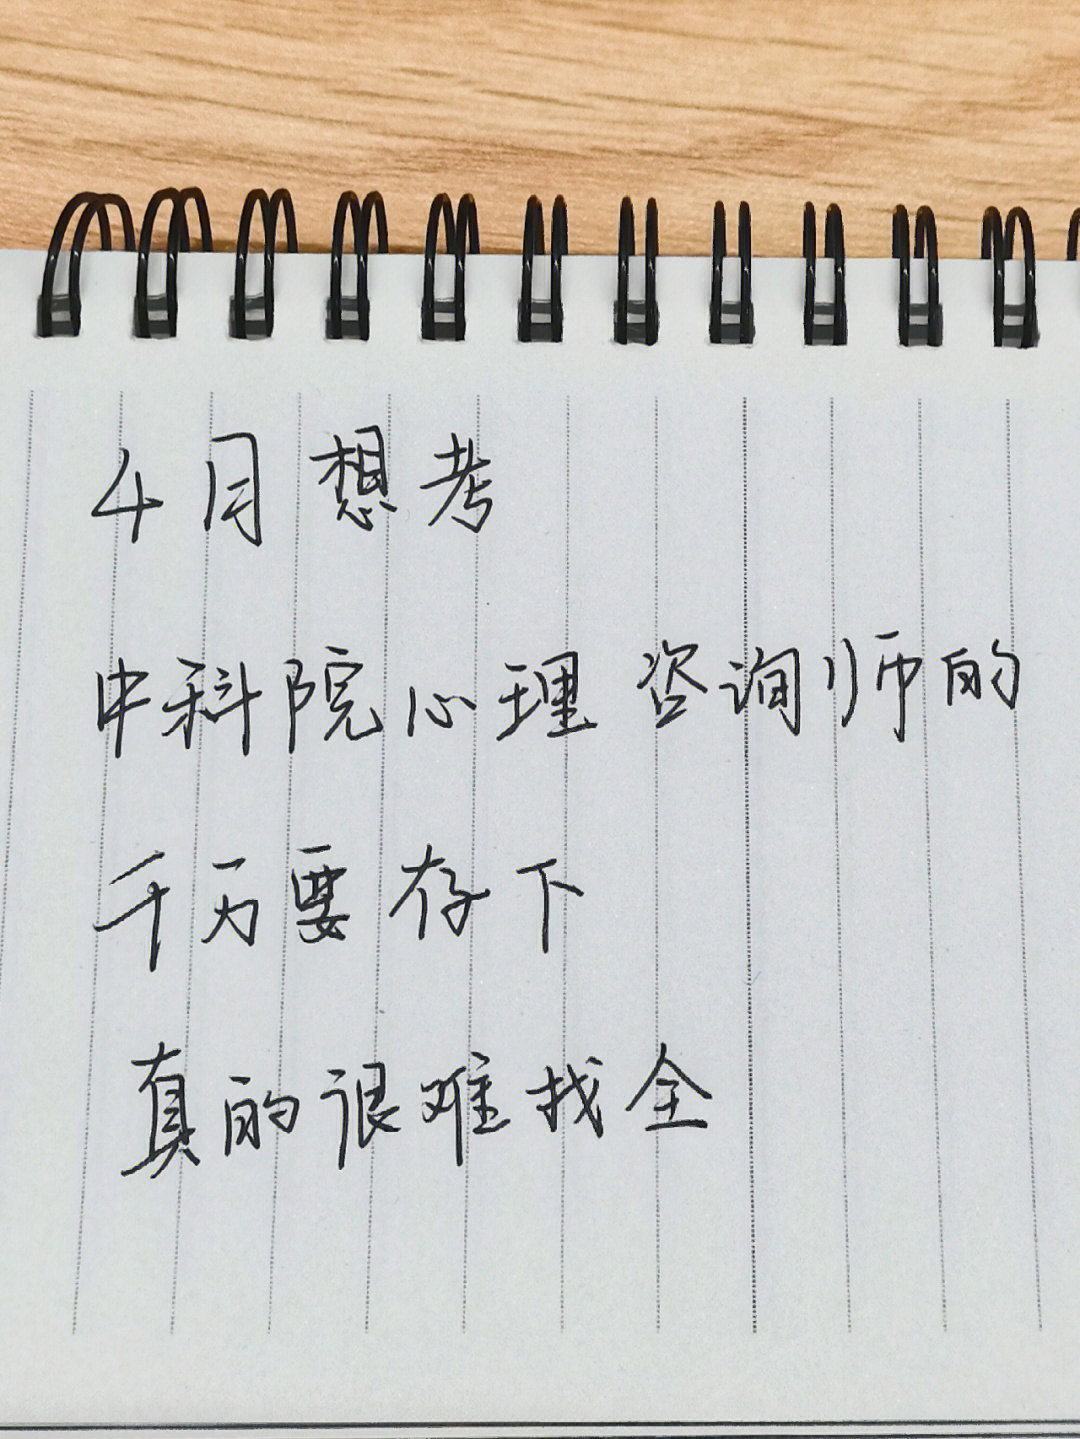 4月想考
中科院心理咨询师的
千万要存下
真的很难找全